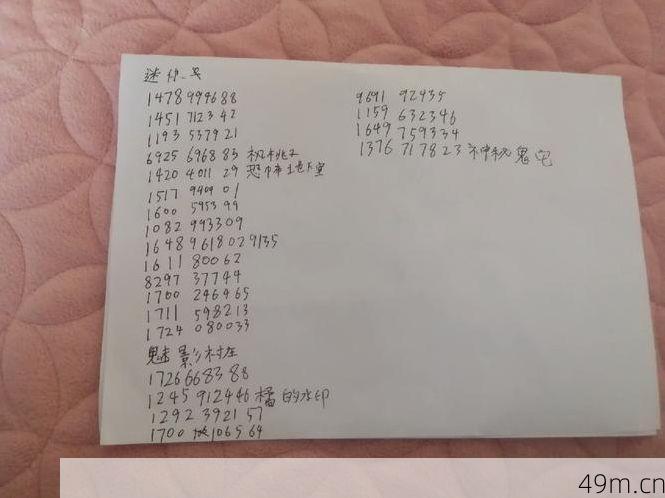 迷你号
1478999688
1451 71123 42
1193 537921
6925 696883 机械
1420 4011 29 恐怖地下室
1517 9909 01
1600 5953 99
1082 993309
1648 9618029135
1611 80062
8297 37744
1700 246465
1711 598213
1724 080033
魅影村庄
1726668388
1245 912446 橘的水印
1292 3921 57
1700 106564
9691 92435
1159 632346
1649 759334
1376 717823 神秘鬼宅
49m.cn